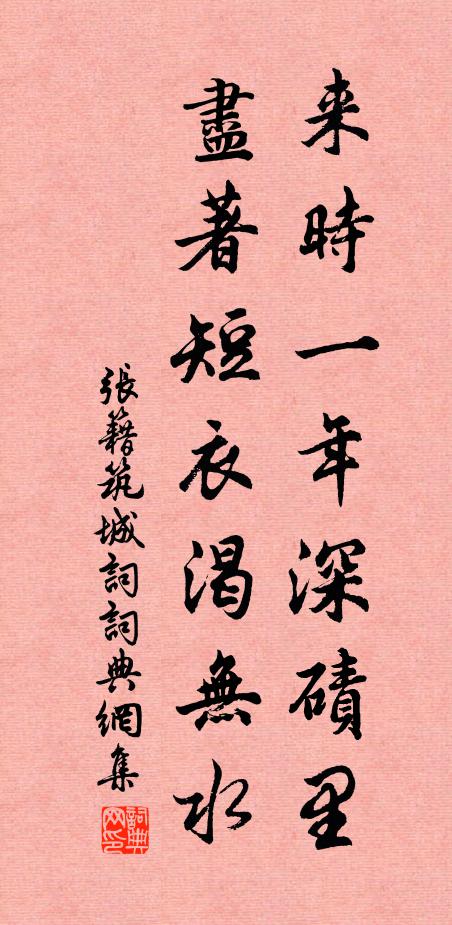 来時一年深磧里
盡著短衣渴無水
張籍筑城詞詞典網集
詞典网印